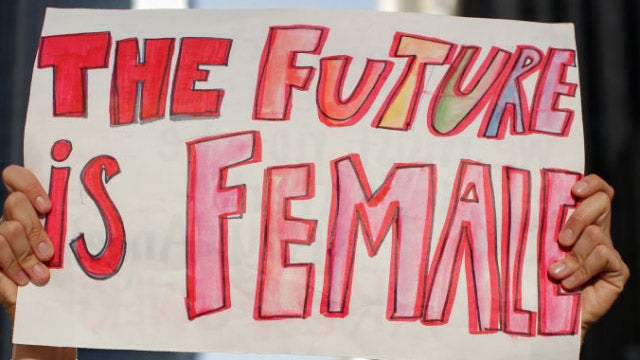 THE FUTURE
iS FEMALE